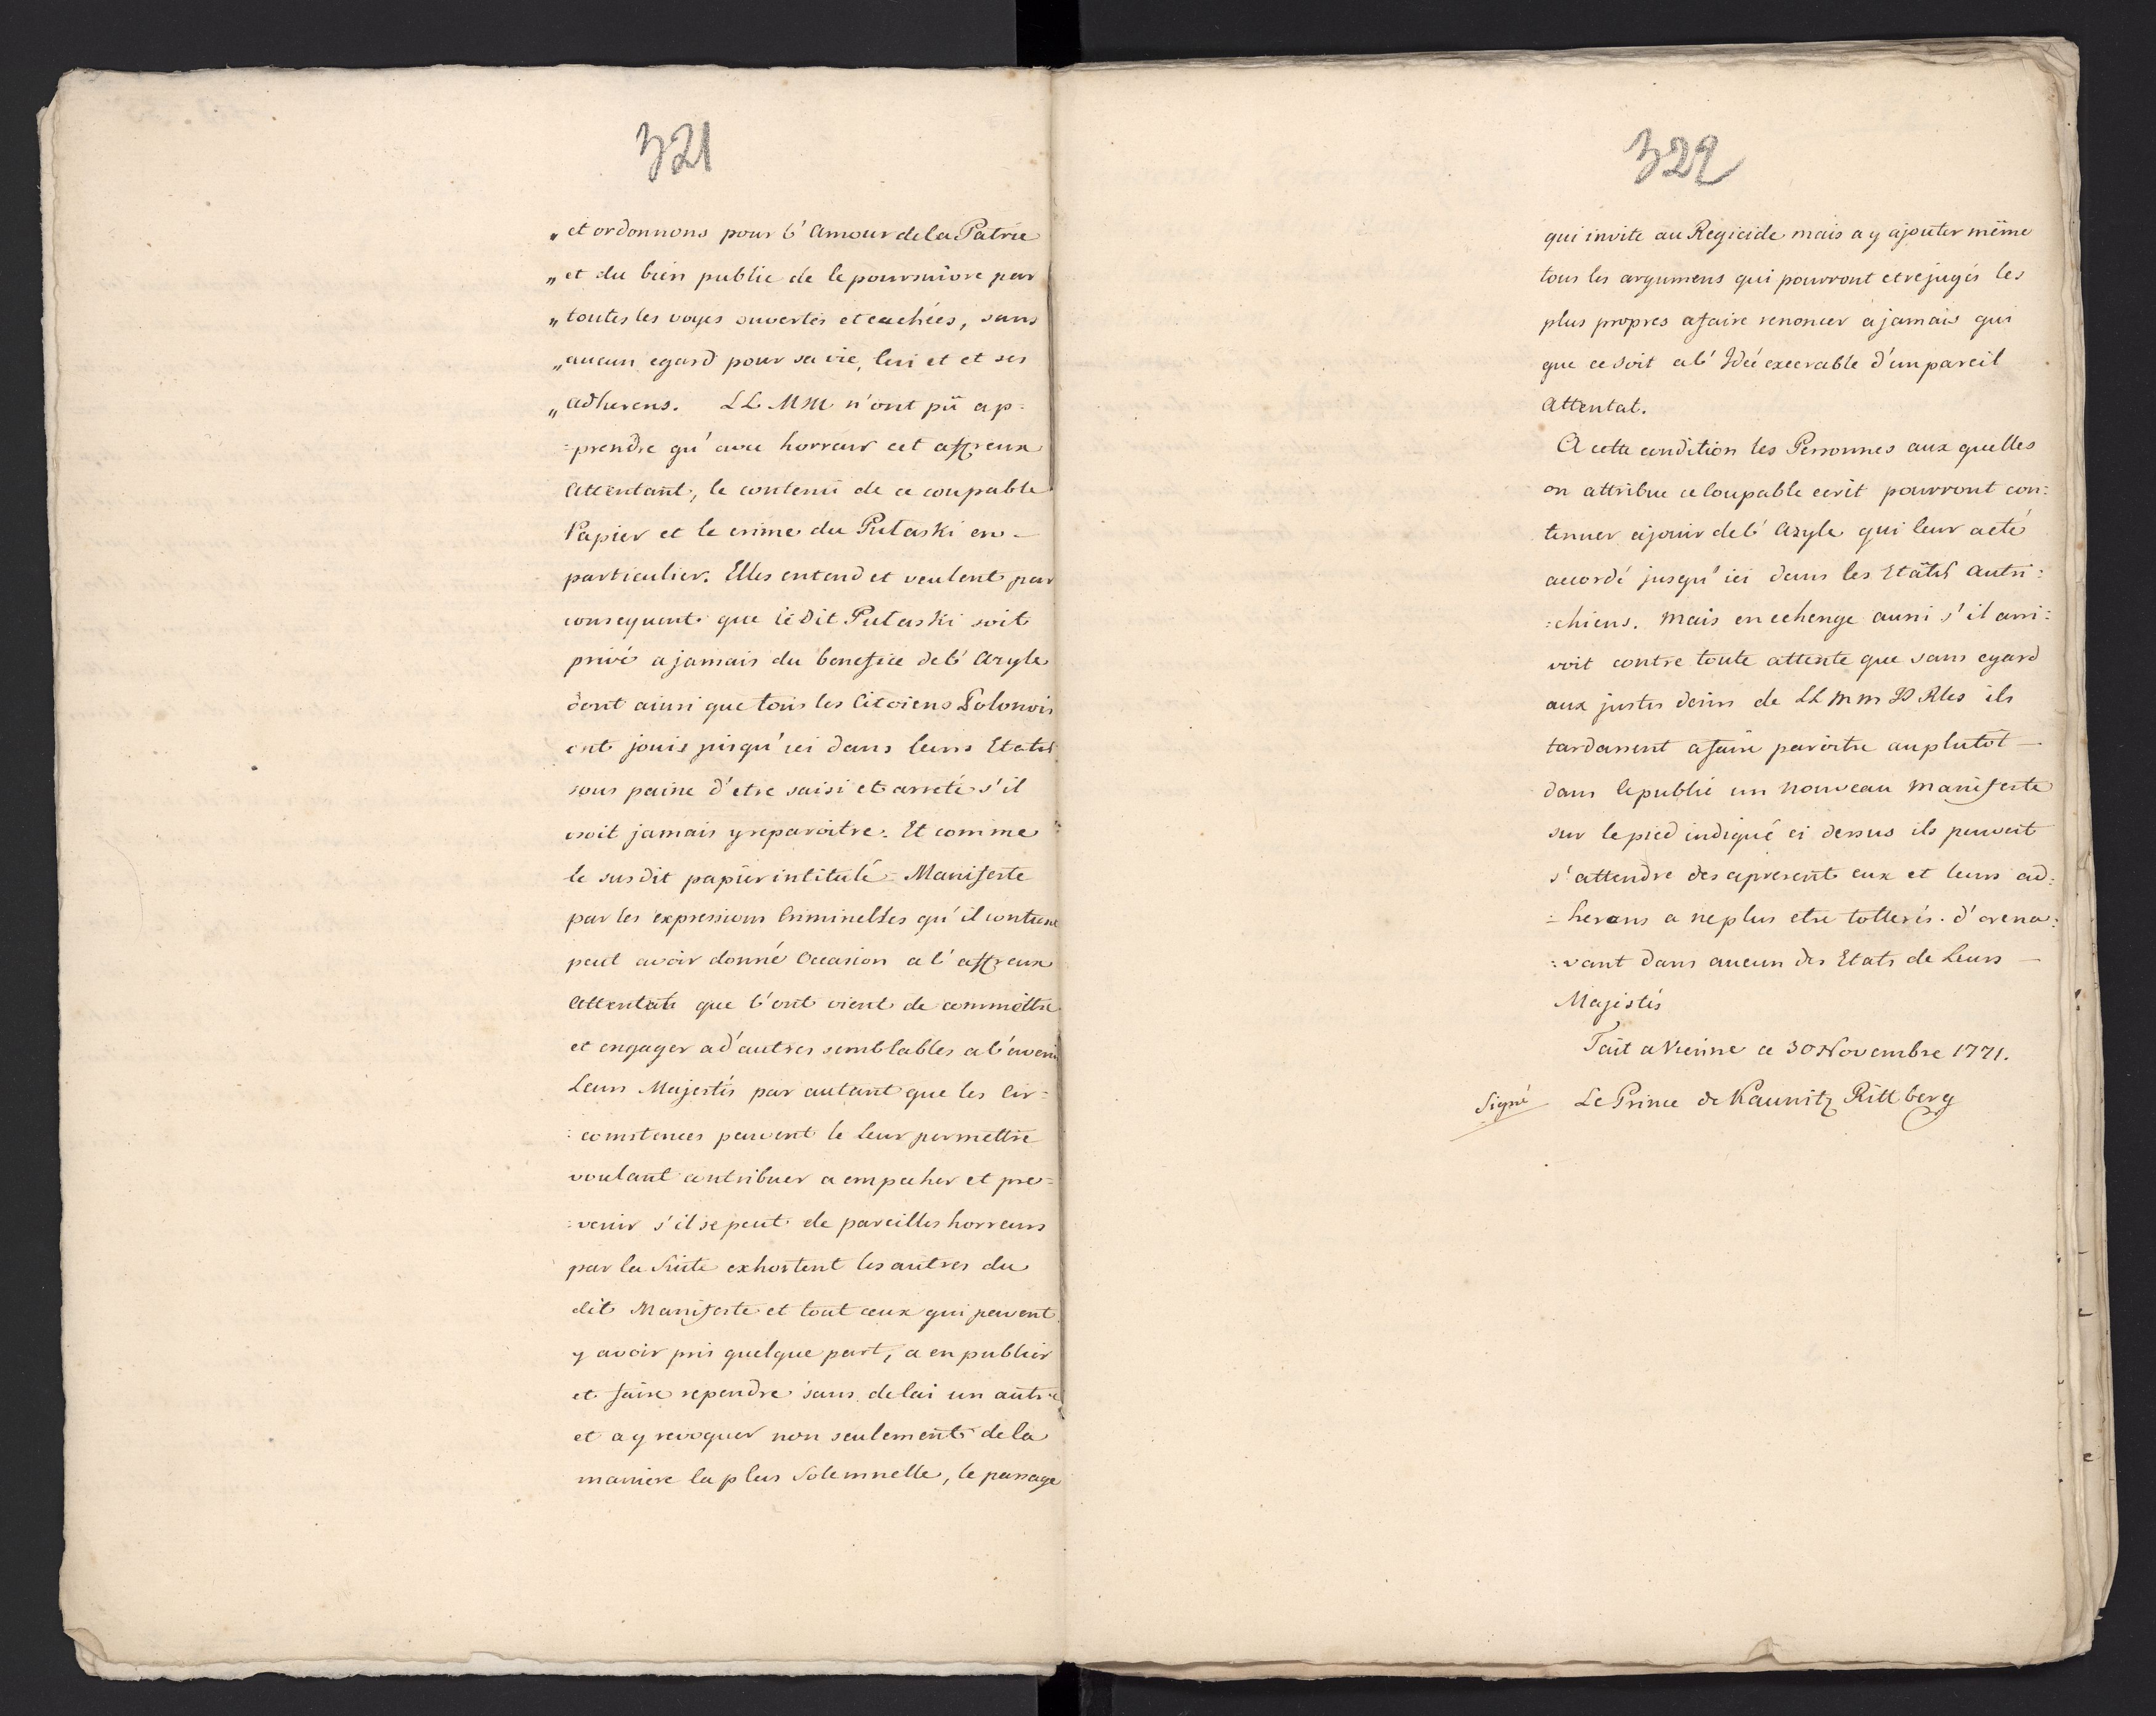 321
„ et ordonnons pour l'Amour de la Patrie
„ et du bien public de le poursuivre par
„ toutes les voyes ouvertes et cachées, sans
„ aucun egard pour sa vie, lui et et ses
„ adherens. LL MM n'ont pû ap=
=prendre qu'avec horreur cet affreux
Attentant, le contenû de ce coupable
Papier et le crime du Pulaski en —
particulier. Elles entend et veulent par
consequent que ledit Pulaski soit
privé a jamais du benefice de l'Azyle
dont ainsi que tous les Citoiens Polonois
ont jouis jusqu'ici dans leurs Etats
sous paine d'etre saisi et arreté s'il
osoit jamais y reparoitre. Et comme
le susdit papier intitulé Manifeste
par les expressions Criminelles qu'il contient
peut avoir donné Occasion a l'affreux
Attentat que l'ont vient de commettre
et engager a d'autres semblables a l'avenir
Leurs Majestés par autant que les Cir=
:comstences peuvent le leur permettre
voulant contribuer a empecher et pre=
:venir s'il se peut de pareilles horreurs
par la Suite exhortent les autres du
dit Manifeste et tout ceux qui peuvent
y avoir pris quelque part, a en publier
et faire rependre sans delai un autre
et a y revoquer non seulement de la
maniere la plus Solemnelle, le passage
322
qui invite au Regicide mais a y ajouter même
tous les argumens qui pourront etre jugés les
plus propres a faire renoncer a jamais qui
que ce soit a l'Idée execrable d'un pareil
Attentat.
A cette condition les Personnes aux quelles
on attribue ce Coupable ecrit pourront con:
tenuer a jouir de l'Azyle qui leur a eté
accordé jusqu'ici dans les Etâts Autri:
:chiens. Mais en echenge aussi s'il arri:
voit contre toute attente que sans egard
aux justes desirs de LL MM II Rles ils
tardassent a faire paroitre au plutôt —
dans le publie un nouveau Manifeste
sur le pied indiqué ci dessus ils peuvent
s'attendre des apresent eux et leurs ad:
=herans a ne plus etre tollerés. d'orena:
:vant dans aucun des Etats de Leurs —
Majestés
Fait a Vienne ce 30 Novembre 1771.
Signé Le Prince de Kaunitz Rittberg